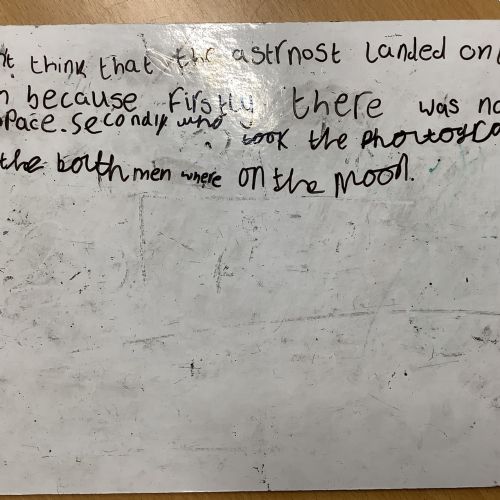 nt think that the astrnost landed on
because Firstly there was no
space. Secondly who took the Phortogra
the borth men where on the moon.